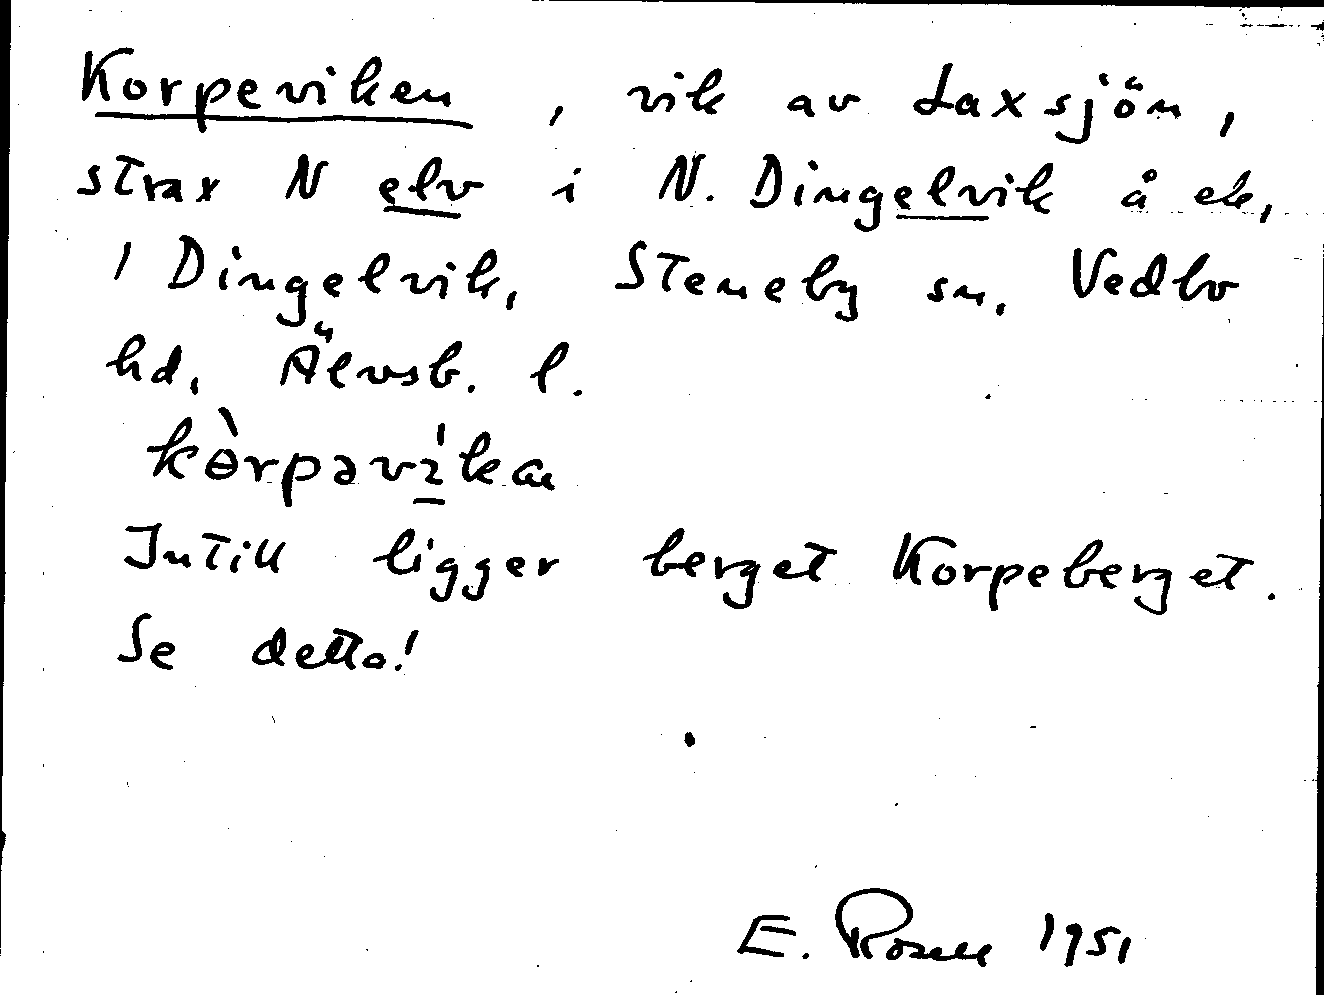 Korpeviken, vik av Laxsjön,
strax N elv i N. Dingelvik å ek,
1 Dingelvik, Steneby sn, Vedbo
hd, Älvsb. l.
kòrpəvi̱ˈkan
Intill ligger berget Korpeberget.
Se detta!
E. Rosell 1951